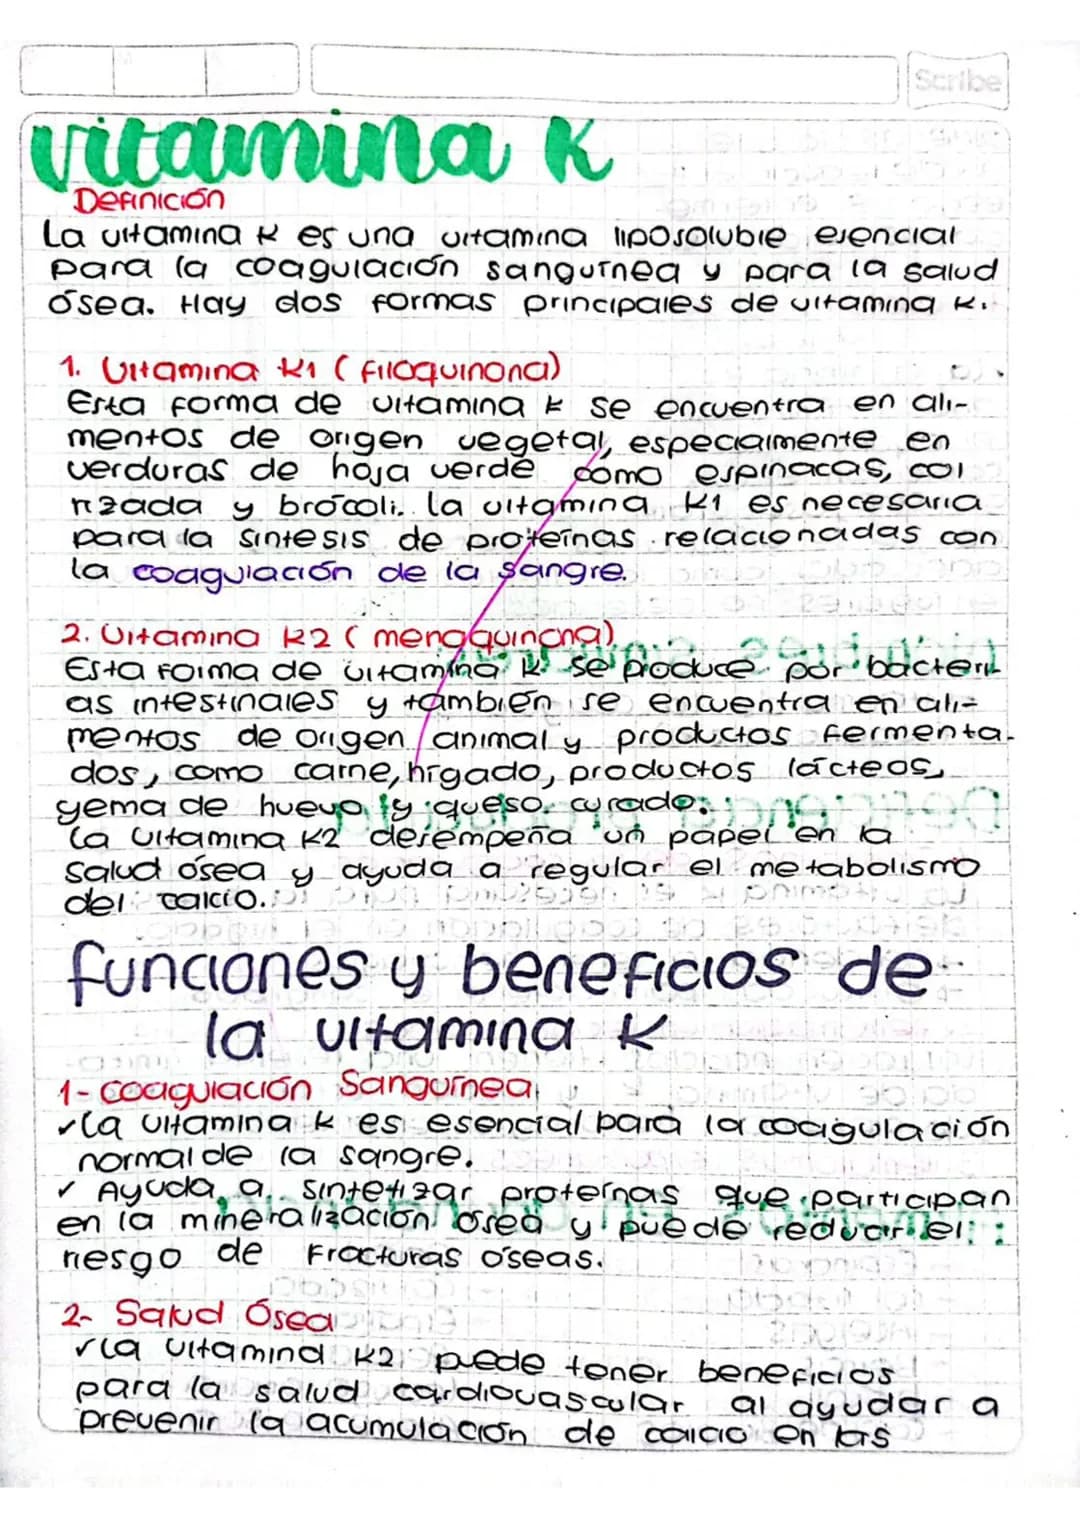 Scribe
vitamina K
Definición
La vitamina K es una vitamina liposoluble esencial
para la coagulación sanguínea y para la salud
ósea. Hay dos formas principales de vitamina K.
1. Vitamina K1 (filoquinona)
Esta forma de vitamina K se encuentra en ali-
mentos de origen vegetal, especialmente en
verduras de hoja verde como espinacas, col
rizada y brócoli. la vitamina K1 es necesaria
para la síntesis de proteínas relacionadas con
la coagulación de la sangre.
2. Vitamina K2 (menaquinona)
Esta forma de vitamina K se produce por bacteri
as intestinales y también se encuentra en ali-
mentos de origen animal y productos fermenta-
dos, como carne, hígado, productos lácteos,
yema de huevo y queso curado.
La vitamina K2 desempeña un papel en la
salud ósea y ayuda a regular el metabolismo
del calcio.
funciones y beneficios de
la vitamina K
1- Coagulación Sanguínea
✓ La vitamina K es esencial para la coagulación
normal de la sangre.
✓ Ayuda a sintetizar proteínas que participan
en la mineralización ósea y puede reducir el
riesgo de fracturas óseas.
2- Salud Ósea
✓ La vitamina K2 puede tener beneficios
para la salud cardiovascular al ayudar a
prevenir la acumulación de calcio en las